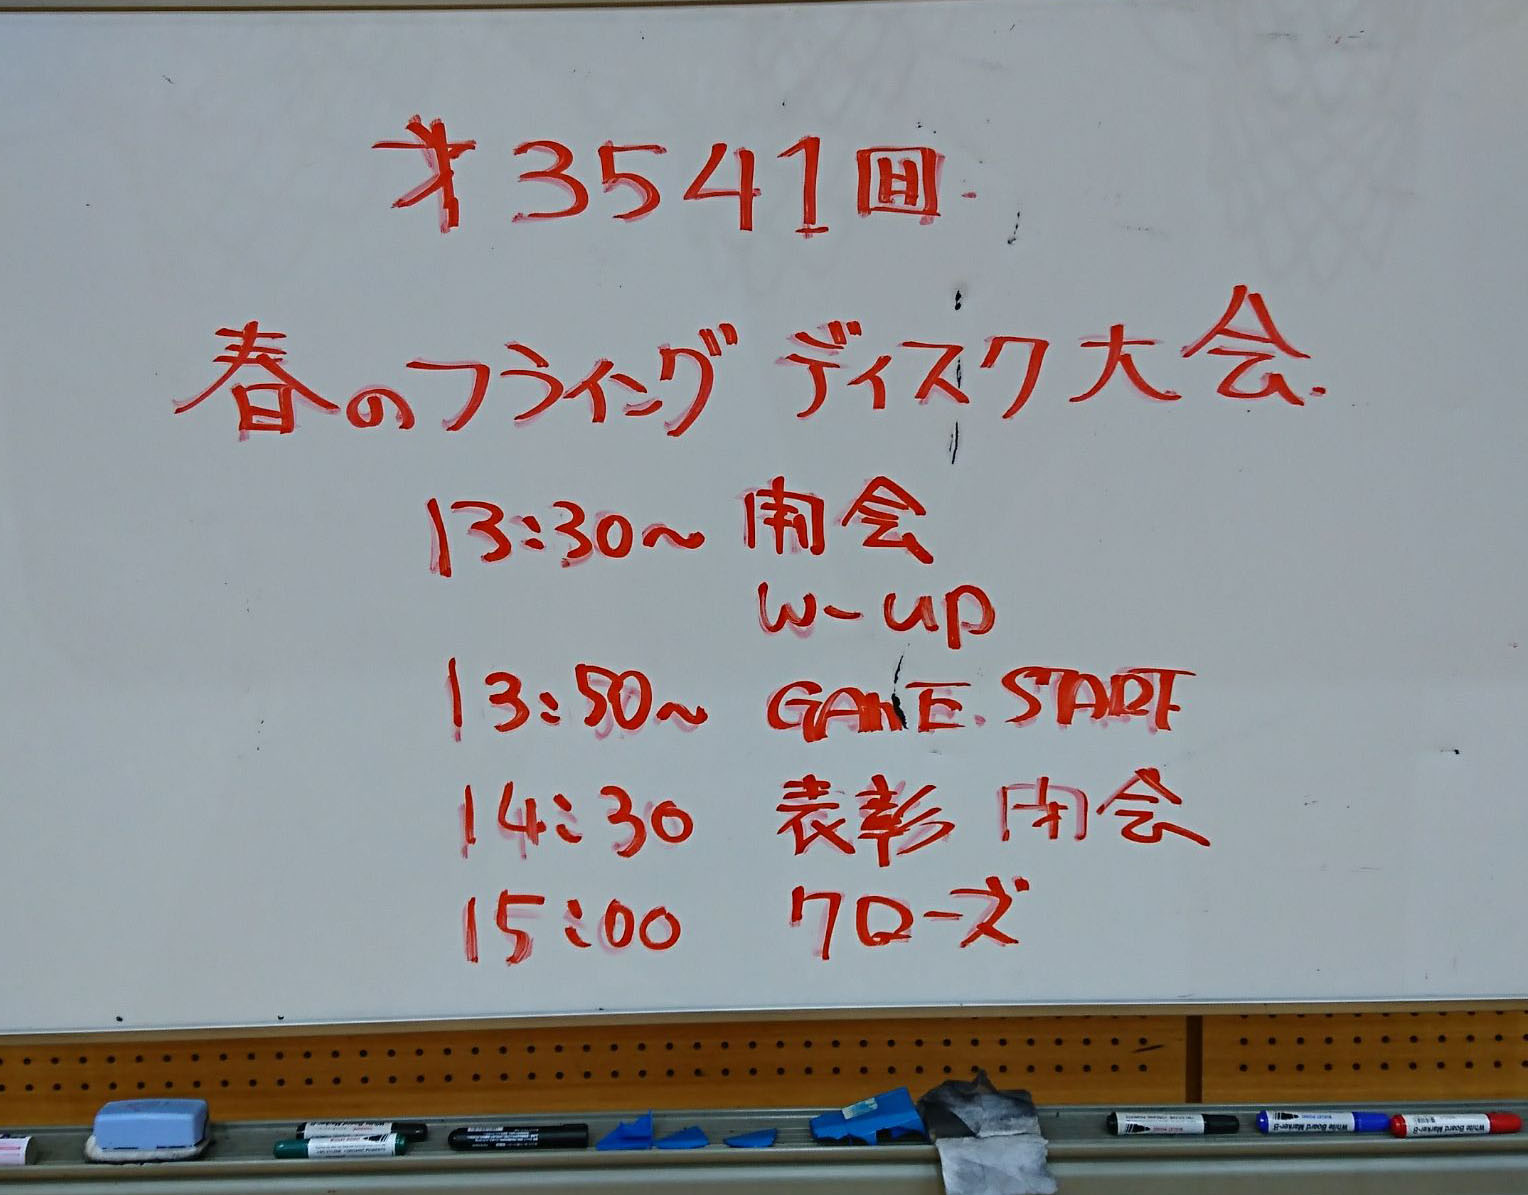 才3541回
春のフライングディスク大会.
13:30~ 開会
W-UP
13:50~ GAME.START
14:30 表彰 閉会
15:00 クローズ
White Board Marker-B
White Board Marker-B